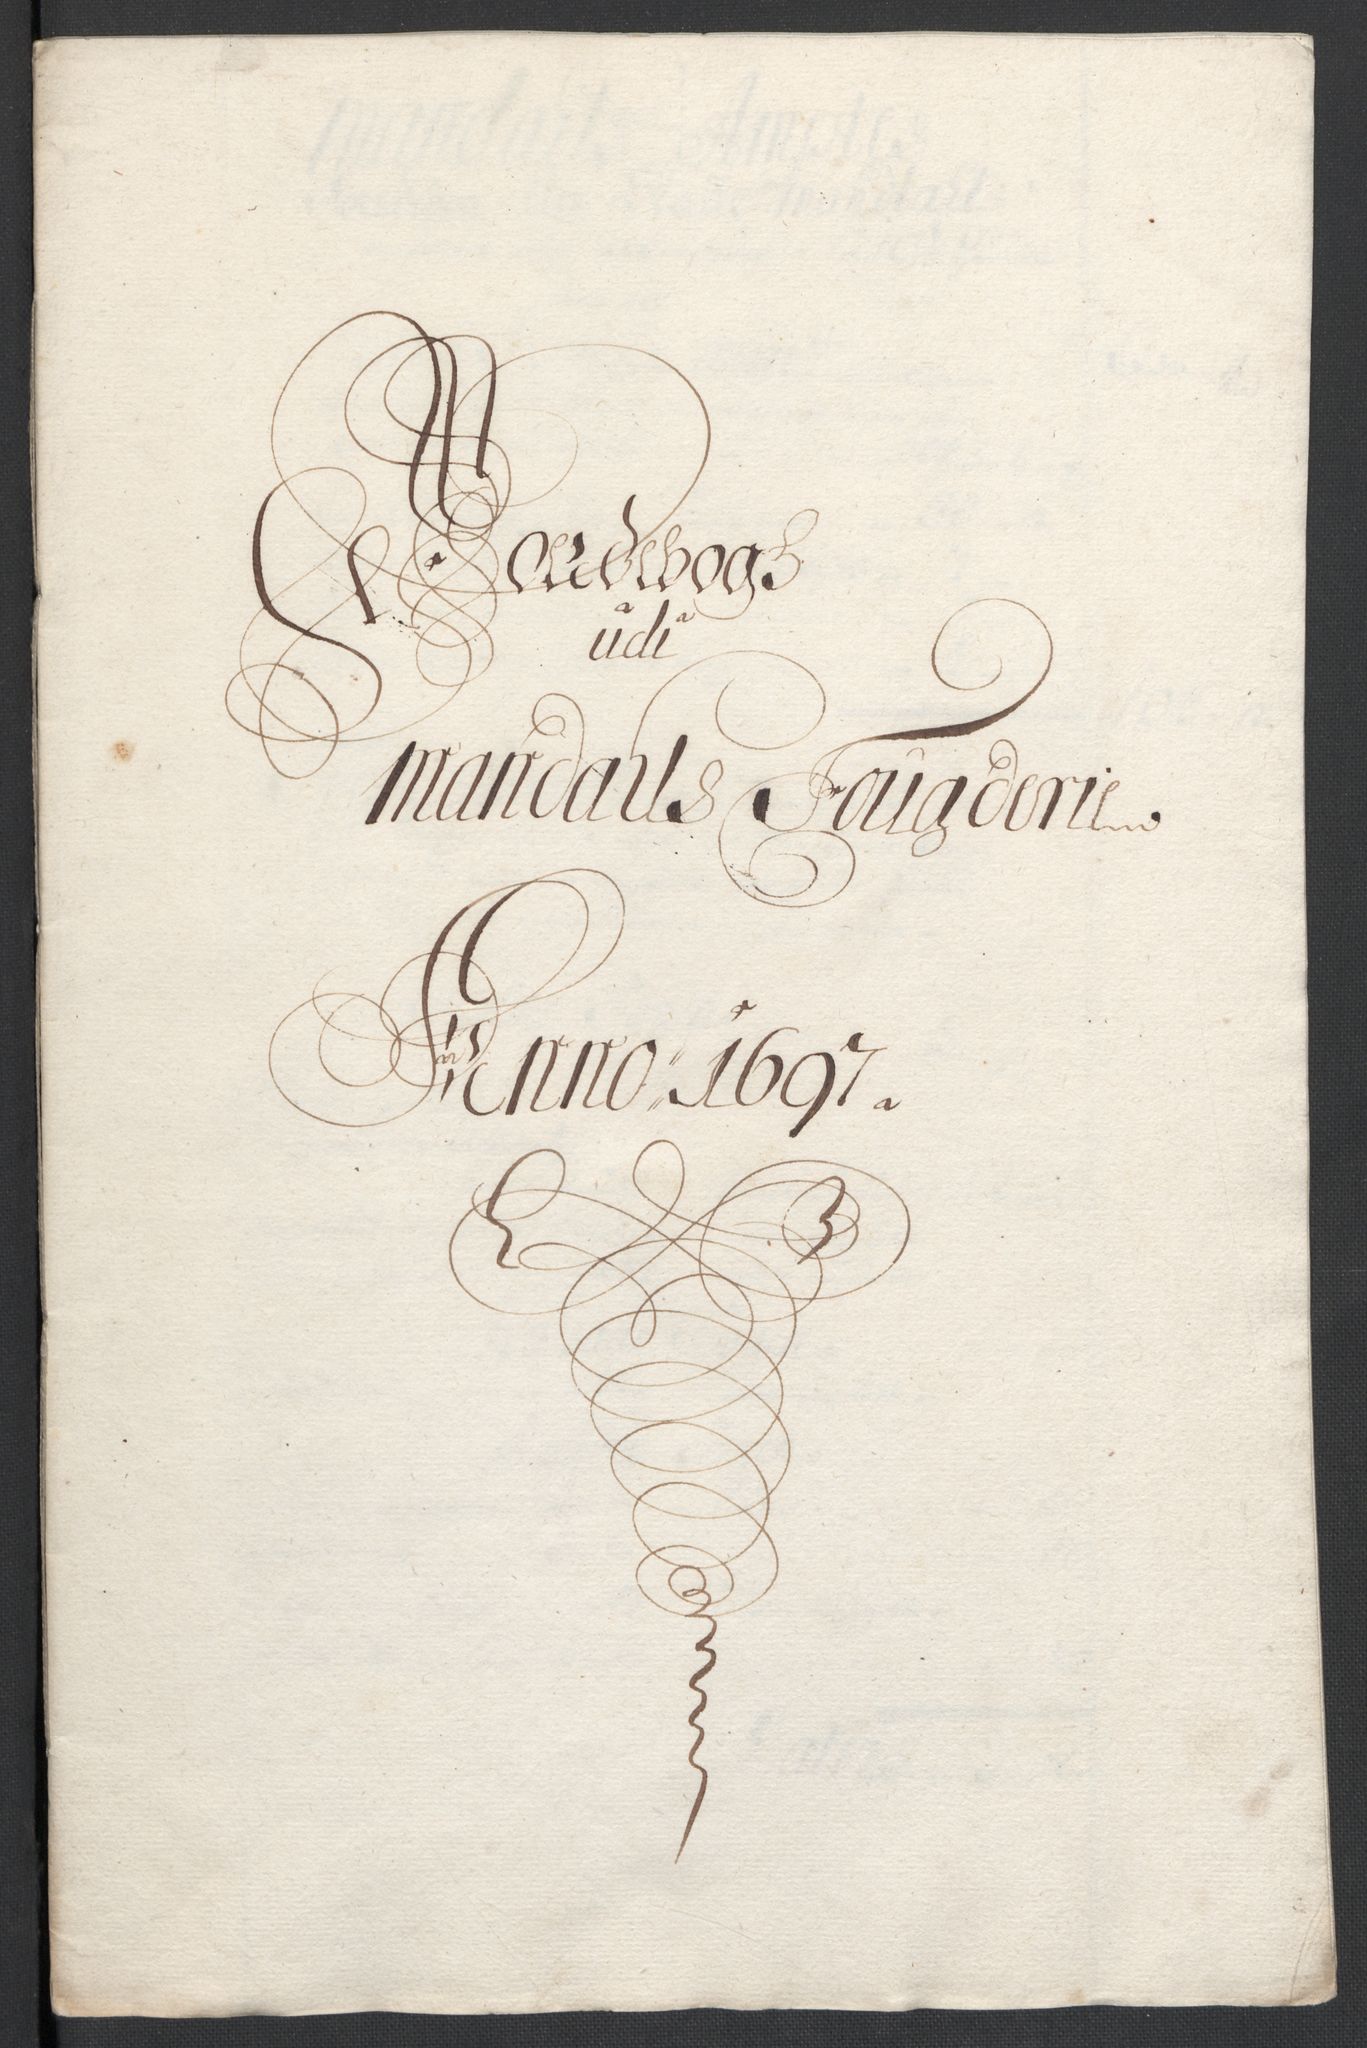 Jordebogs
udi
mandals Fougderie
Anno 1697.